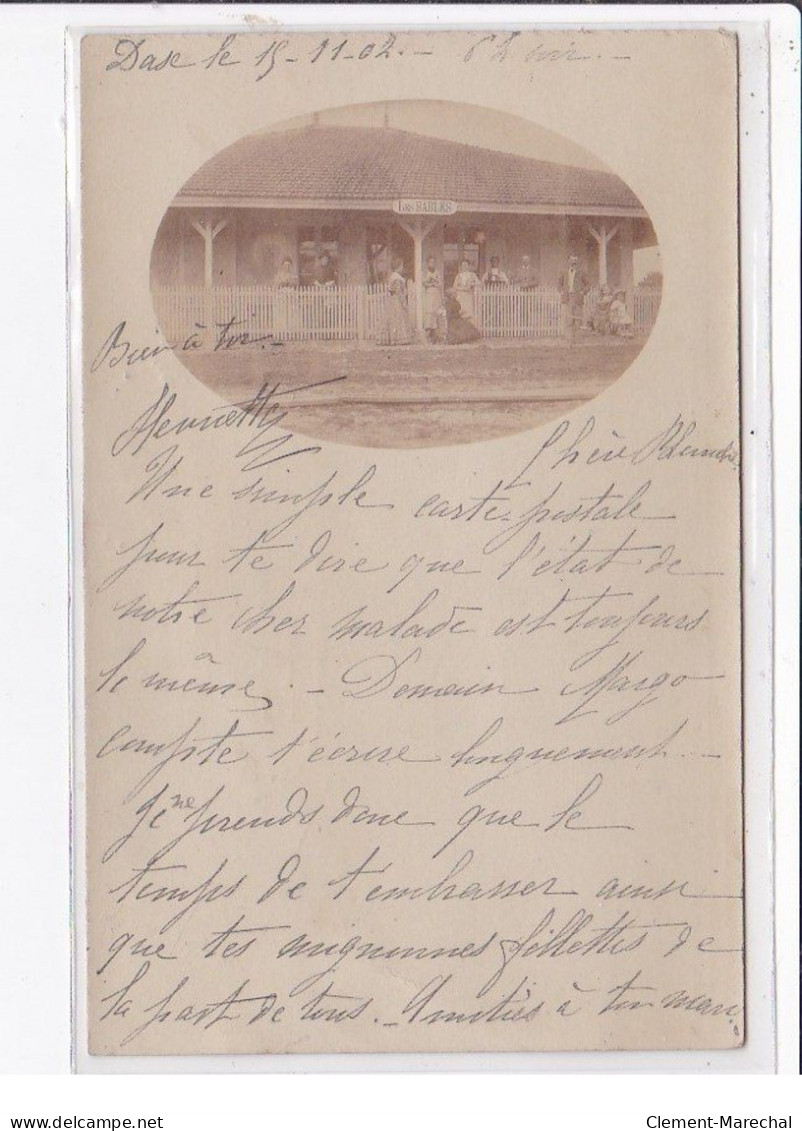 Dax le 15-11-02.- 6 h soir.-
Les SABLES
Bien à toi.-
Henriette
Chère Blanche,
Une simple carte-postale
pour te dire que l'état de
notre cher malade est toujours
le même. - Demain Margo
compte t'écrire longuement.-
Je ne prends donc que le
temps de t'embrasser ainsi
que tes mignonnes fillettes de
la part de tous. - Amitiés à ton mari.
Clement-Marechal